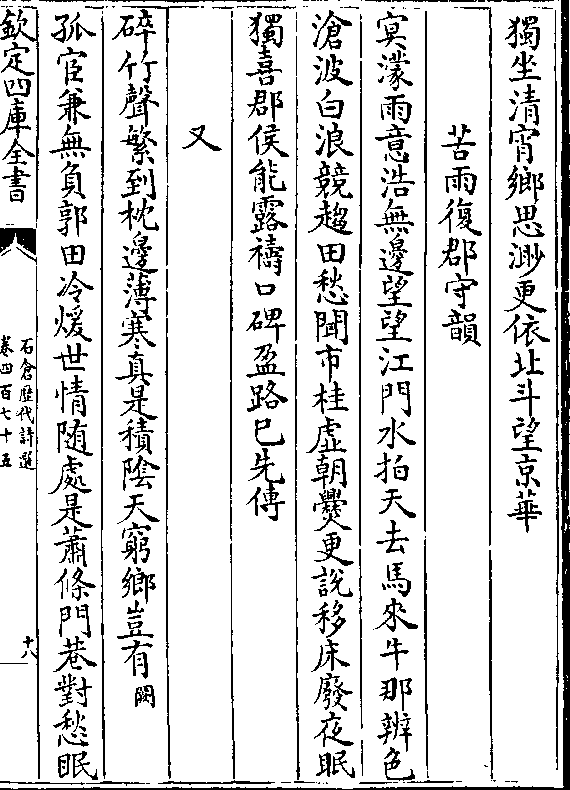 獨坐清宵鄉思渺更依北斗望京華
苦雨復郡守韻
㝠濛雨意浩無邊望望江門水拍天去馬來牛那辨色
滄波白浪競趨田愁聞市桂虛朝㸑更說移床廢夜眠
獨喜郡侯能露禱口碑盈路已先傳
又
碎竹聲繁到枕邊薄寒真是積隂天窮鄉豈有闕
孤宦兼無負郭田冷煖世情随處是蕭條門巷對愁眠
欽定四庫全書
石倉歴代詩選
卷四百七十五
十八